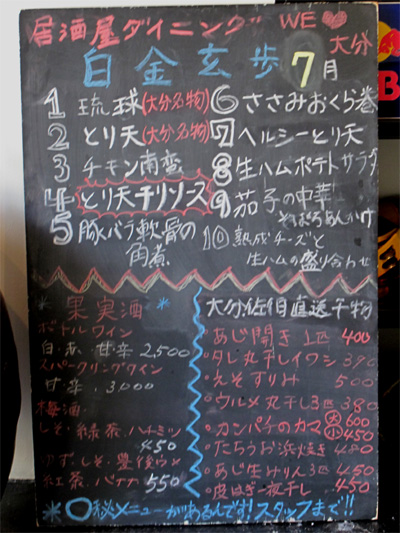 居酒屋ダイニング WE♥大分
白金玄歩 7月
1 琉球(大分名物)
2 とり天(大分名物)
3 チキン南蛮
4 とり天チリソース
5 豚バラ軟骨の角煮
6 ささみおくら巻
7 ヘルシーとり天
8 生ハムポテトサラダ
9 茄子の中華そぼろあんかけ
10 熟成チーズと生ハムの盛り合わせ
* 果実酒 *
ボトルワイン
白・赤 甘・辛 2,500
スパークリングワイン
甘・辛 3,000
梅酒
しそ・緑茶・ハチミツ
450
ゆず・しそ・豊後ウメ
紅茶・バナナ 550
大分佐伯直送干物
・あじ開き 1匹 400
・丸干しイワシ 390
・えそすりみ 500
・ウルメ丸干し3匹 380
・カンパチのカマ 大600 小450
・たちうお浜焼き 480
・あじ生みりん3匹 450
・皮はぎ一夜干し 450
*○秘メニューがあるんです!スタッフまで!!